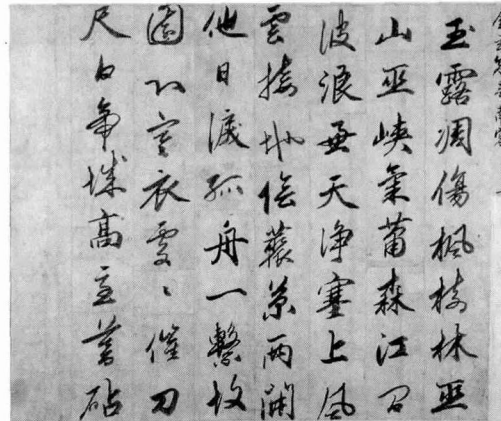 玉露凋傷楓樹林巫
山巫峽氣蕭森江間
波浪兼天淨塞上風
雲接地陰藂菊兩開
他日淚孤舟一繫故
園心寒衣處〻催刀
尺白帝城高急暮砧